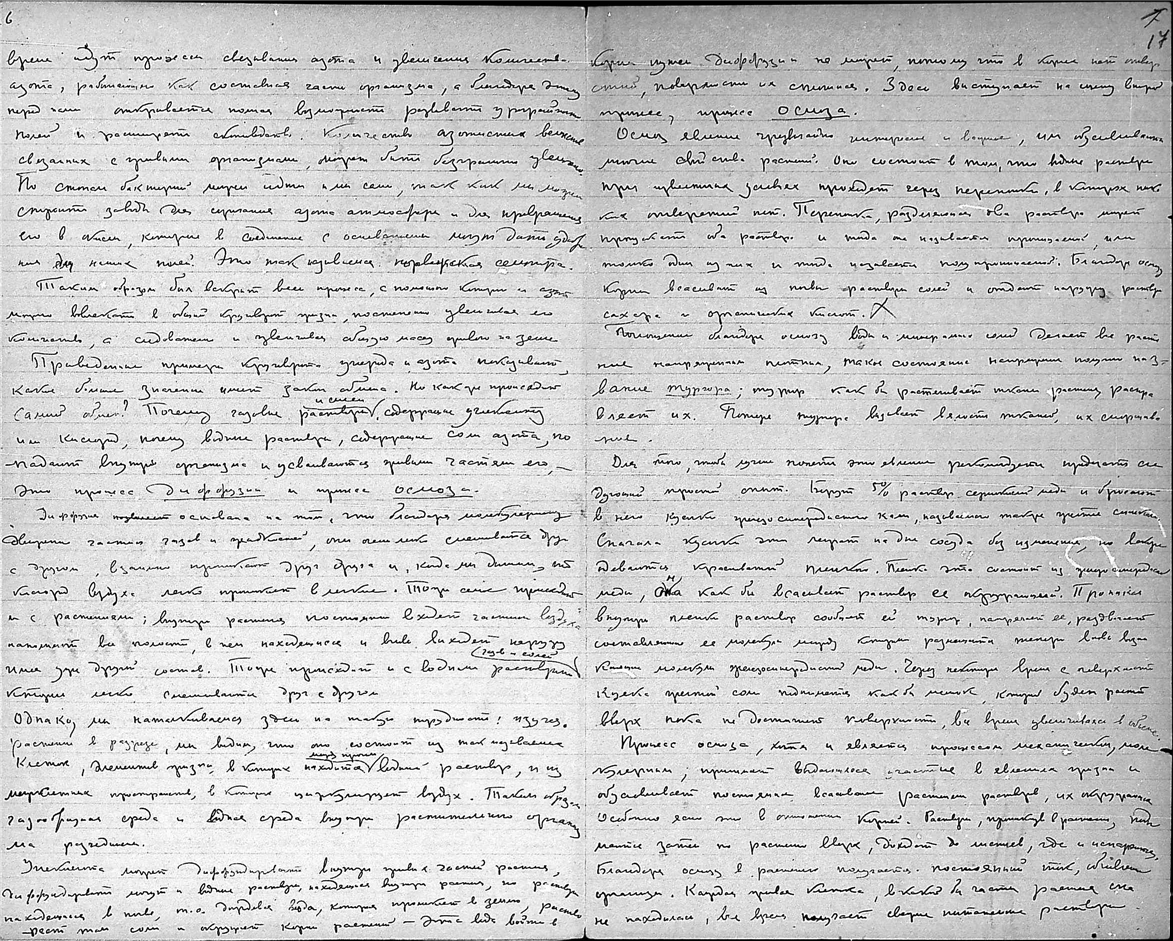 6
время идут процессы связывания азота и увеличения количества
азота, работающего как составная часть организма, а благодаря этому
перед нами открывается полная возможность развивать урожайность
полей и расширять скотоводство. Количество азотистых веществ
связанных с живыми организмами, может быть безгранично увеличено
По стопам бактерий могли идти и мы сами, так как мы можем
строить заводы для сжигания азота атмосферы и для превращения
его в окиси, которые в соединение с основаниями могут дать удобре
ния для наших полей. Это так называемая норвежская селитра.
Таким образом был вскрыт весь процесс, с помощью которого и азот
можно вовлекать в общий круговорот жизни, постепенно увеличивая его
количество, а следовательно и увеличивая общую массу живого на земле
Приведенные примеры круговорота углерода и азота показывают,
какое большое значение имеет закон обмена. Но как же происходит
самый обмен? Почему газовые растворы, содержащие углекислоту
или кислород, почему водные растворы, содержащие соли азота, по
падают внутрь организма и усваиваются живыми частями его, —
это процесс диффузии и процесс осмоза.
Диффузия основана на том, что благодаря молекулярному
движению частиц газов и жидкостей, они очень легко смешиваются друг
с другом, взаимно проникают друг друга и, когда мы дышим, то
кислород воздуха легко проникает в легкие. Тоже самое происходит
и с растениями; внутрь растения постоянно входят частицы воздуха
наполняют все полости, в нем находящиеся и вновь выходят наружу
газов и солей
имея уже другой состав. Тоже происходит и с водными растворами
которые легко смешиваются друг с другом
Однако, мы наталкиваемся здесь на такую трудность: изучая
растение в разрезе, мы видим, что оно состоит из так называемых
клеток, элементов жизни, в которых находится водный раствор, и из
межклетных пространств, в которых циркулирует воздух. Таким образом
газообразная среда и водная среда внутри растительного организ
ма разделены.
Углекислота может диффундировать внутрь живых частей растения,
диффундировать могут и водные растворы, находящиеся внутри растения, но растворы
находящиеся в почве, т.е. дождевая вода, которая проникает в землю, раство
ряет там соли и окружает корни растений — эта вода войти в
7
17
корни путем диффузии не может, потому что в корнях нет отвер
стий, поверхности их сплошная. Здесь выступает на сцену второй
процесс, процесс осмоза.
Осмоз явление чрезвычайно интересное и важное, им обусловлены
многие свойства растений. Оно состоит в том, что водные растворы
при известных условиях проходят через перепонки, в которых ника
ких отверстий нет. Перепонка, разделяющая два раствора может
пропускать оба раствора и тогда она называется проницаемой, или
только один из них и тогда называется полупроницаемой. Благодаря осмозу
корни всасывают из почвы растворы солей и отдают наружу раствор
сахара и органических кислот. X
Поглощение благодаря осмозу воды и минеральных солей делает все расте
ние напряженным плотным, такое состояние напряжения получило наз-
вание тургора; тургор как бы растягивает ткани растения, распра
вляет их. Потеря тургора вызывает вялость тканей, их сморщива
ние.
Для того, чтобы лучше понять это явление рекомендуется проделать сле
дующий простой опыт. Берут 5% раствор сернокислой меди и бросают
в него кусочки железосинеродистого калия, называемого также желтой синькой
Сначала кусочки эти лежат на дне сосуда без изменения, но вскоре
одеваются красноватой пленкой. Пленка эта состоит из железосинеродистой
меди, она как бы всасывает раствор ее окружающий. Проникая
внутрь пленки раствор сообщает ей тургор, напрягает ее, раздвигает
составляющие ее молекулы между которыми размещаются теперь вновь возни
кающие молекулы железосинеродистой меди. Через некоторое время с поверхности
кусочка желтой соли поднимается как бы мешок, который будет расти
вверх пока не достигнет поверхности, все время увеличиваясь в объеме.
Процесс осмоза, хотя и является процессом механическим, моле
кулярным; принимает выдающееся участие в явлениях жизни и
обусловливает постоянное всасывание растением растворов, их окружающих
Особенно ясно это в отношении корней. Растворы, проникнув в растение, подни
маются затем по растению вверх, доходят до листьев, где и испаряются.
Благодаря осмозу в растении получается постоянный ток, обмывающий
организм. Каждая живая клетка, в какой бы части растения она
не находилась, все время получает свежие питательные растворы